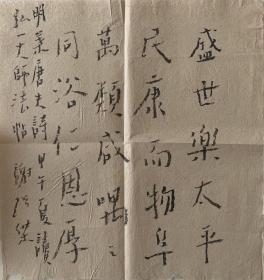 盛世樂太平
民康而物阜
萬類咸喁々
同浴仁恩厚
明蕅唐史詩 甲午夏讀
弘一大師法帖 謝